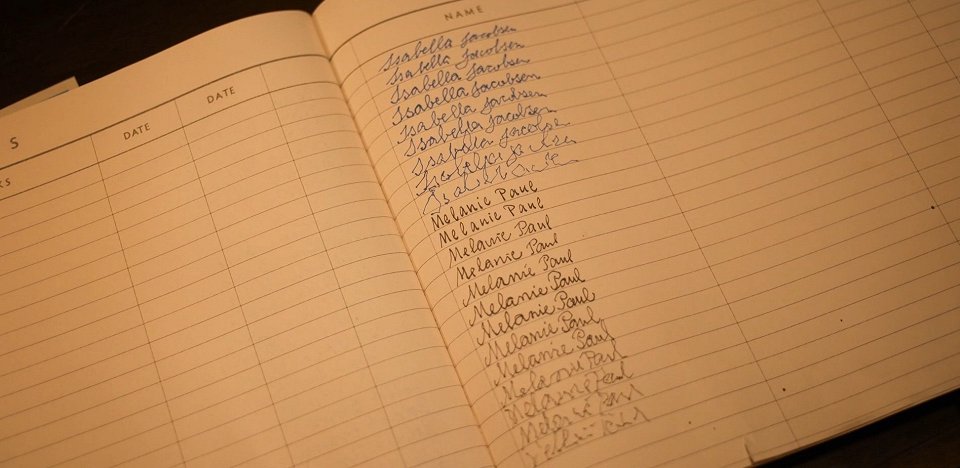 S
DATE
DATE
NAME
Isabella Jacobsen
Isabella Jacobsen
Isabella Jacobsen
Isabella Jacobsen
Isabella Jacobsen
Isabella Jacobsen
Isabella Jacobsen
Melanie Paul
Melanie Paul
Melanie Paul
Melanie Paul
Melanie Paul
Melanie Paul
Melanie Paul
Melanie Paul
Melanie Paul
Melanie Paul
Melanie Paul
Melanie Paul